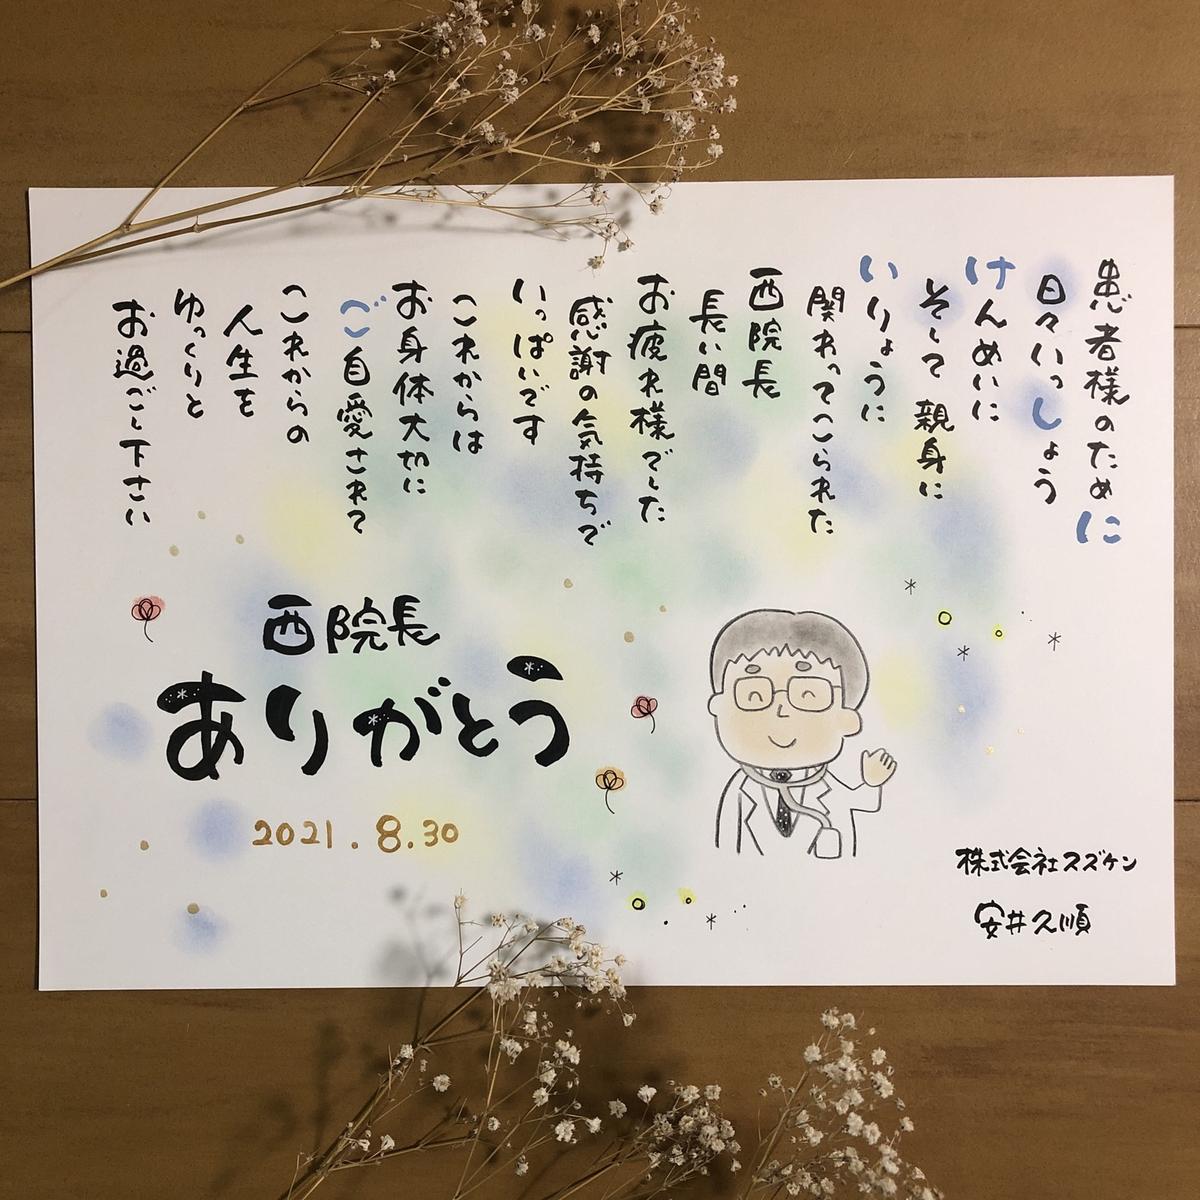 患者様のために
日々いっしょう
けんめいに
そして親身に
いりょうに
関わってこられた
西院長
長い間
お疲れ様でした
感謝の気持ちで
いっぱいです
これからは
お身体大切に
ご自愛されて
これからの
人生を
ゆっくりと
お過ごし下さい
西院長
ありがとう
2021.8.30
株式会社スズケン
安井久順